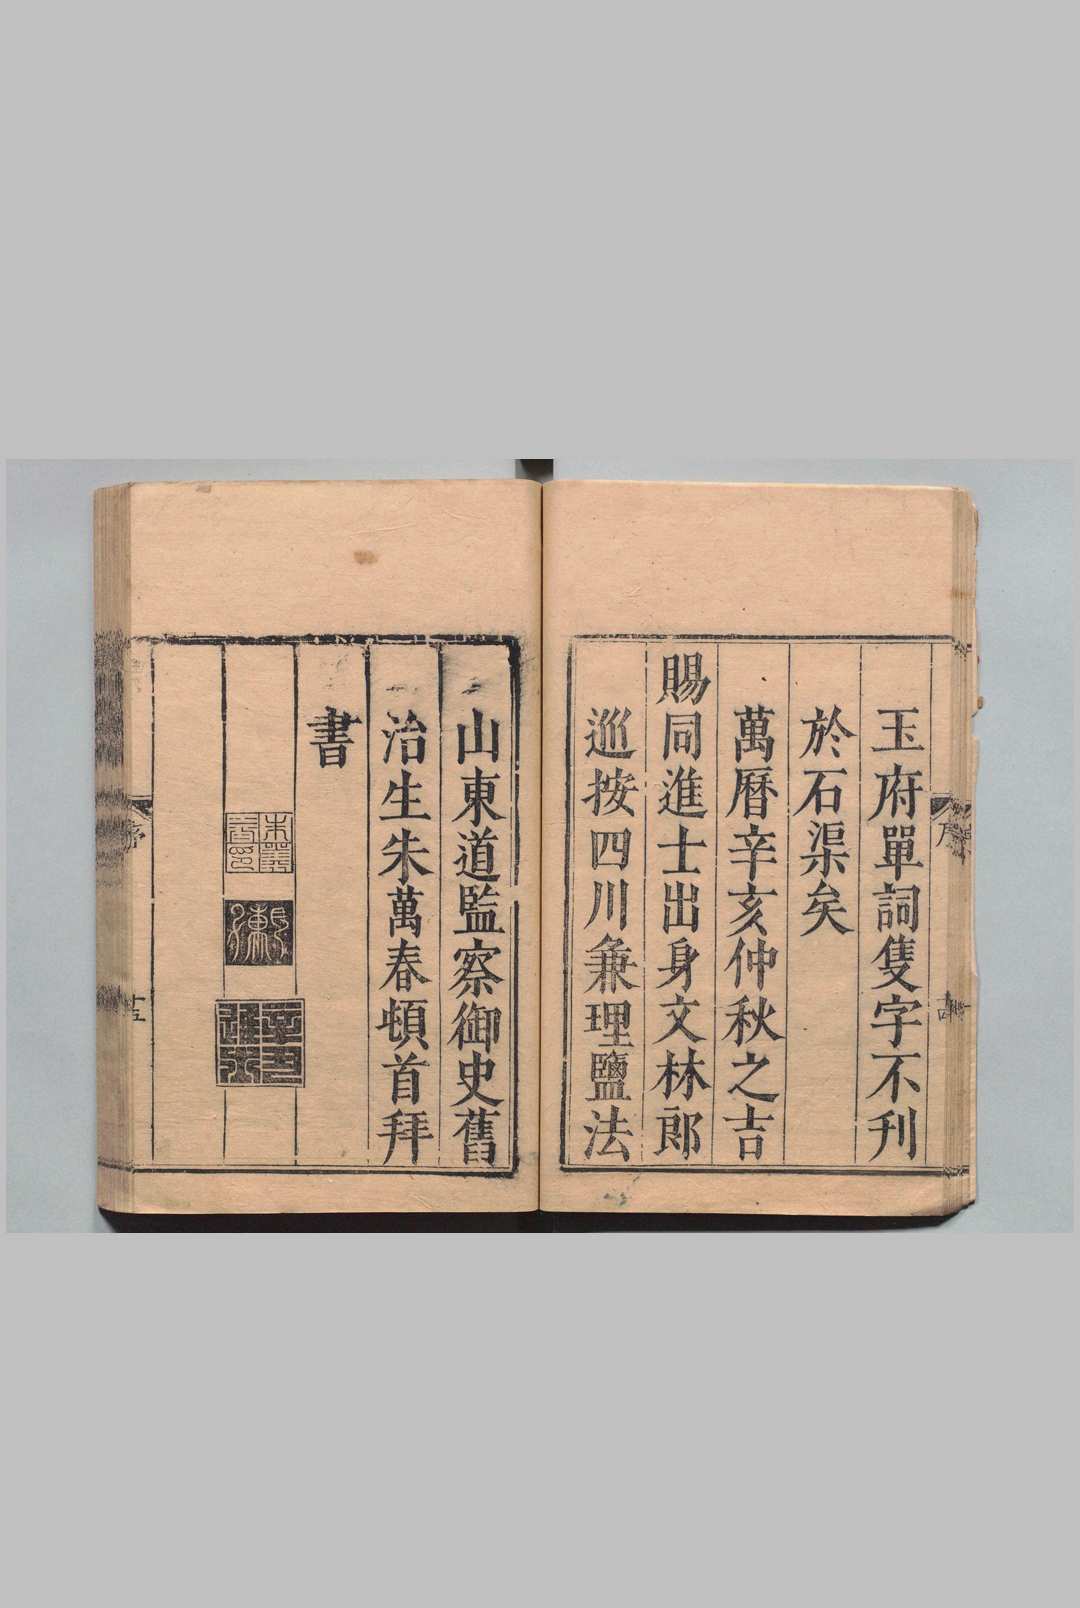 玉府單詞隻字不刋
於石渠矣
萬曆辛亥仲秋之吉
賜同進士出身文林郎
巡按四川兼理鹽法
山東道監察御史舊
治生朱萬春頓首拜
書
序